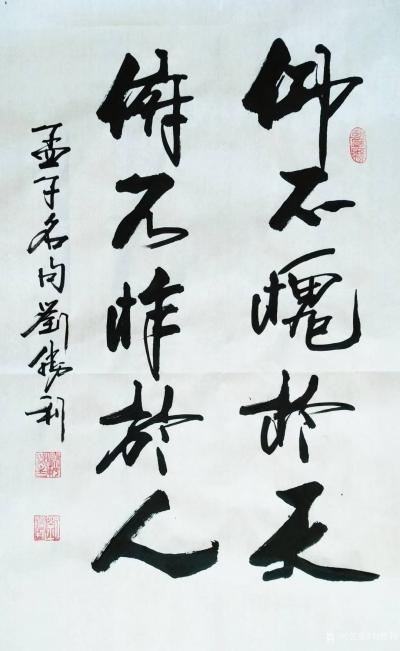 仰不愧於天
俯不怍於人
孟子名句劉勝利